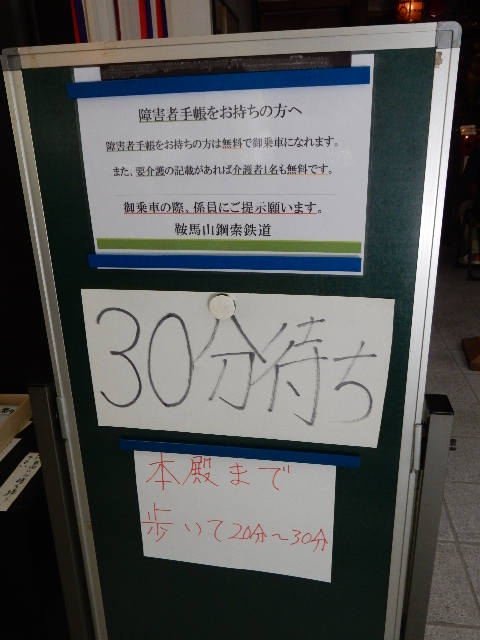 障害者手帳をお持ちの方へ
障害者手帳をお持ちの方は無料で御乗車になれます。
また、要介護の記載があれば介護者1名も無料です。
御乗車の際、係員にご提示願います。
鞍馬山鋼索鉄道
30分待ち
本殿まで
歩いて20分～30分